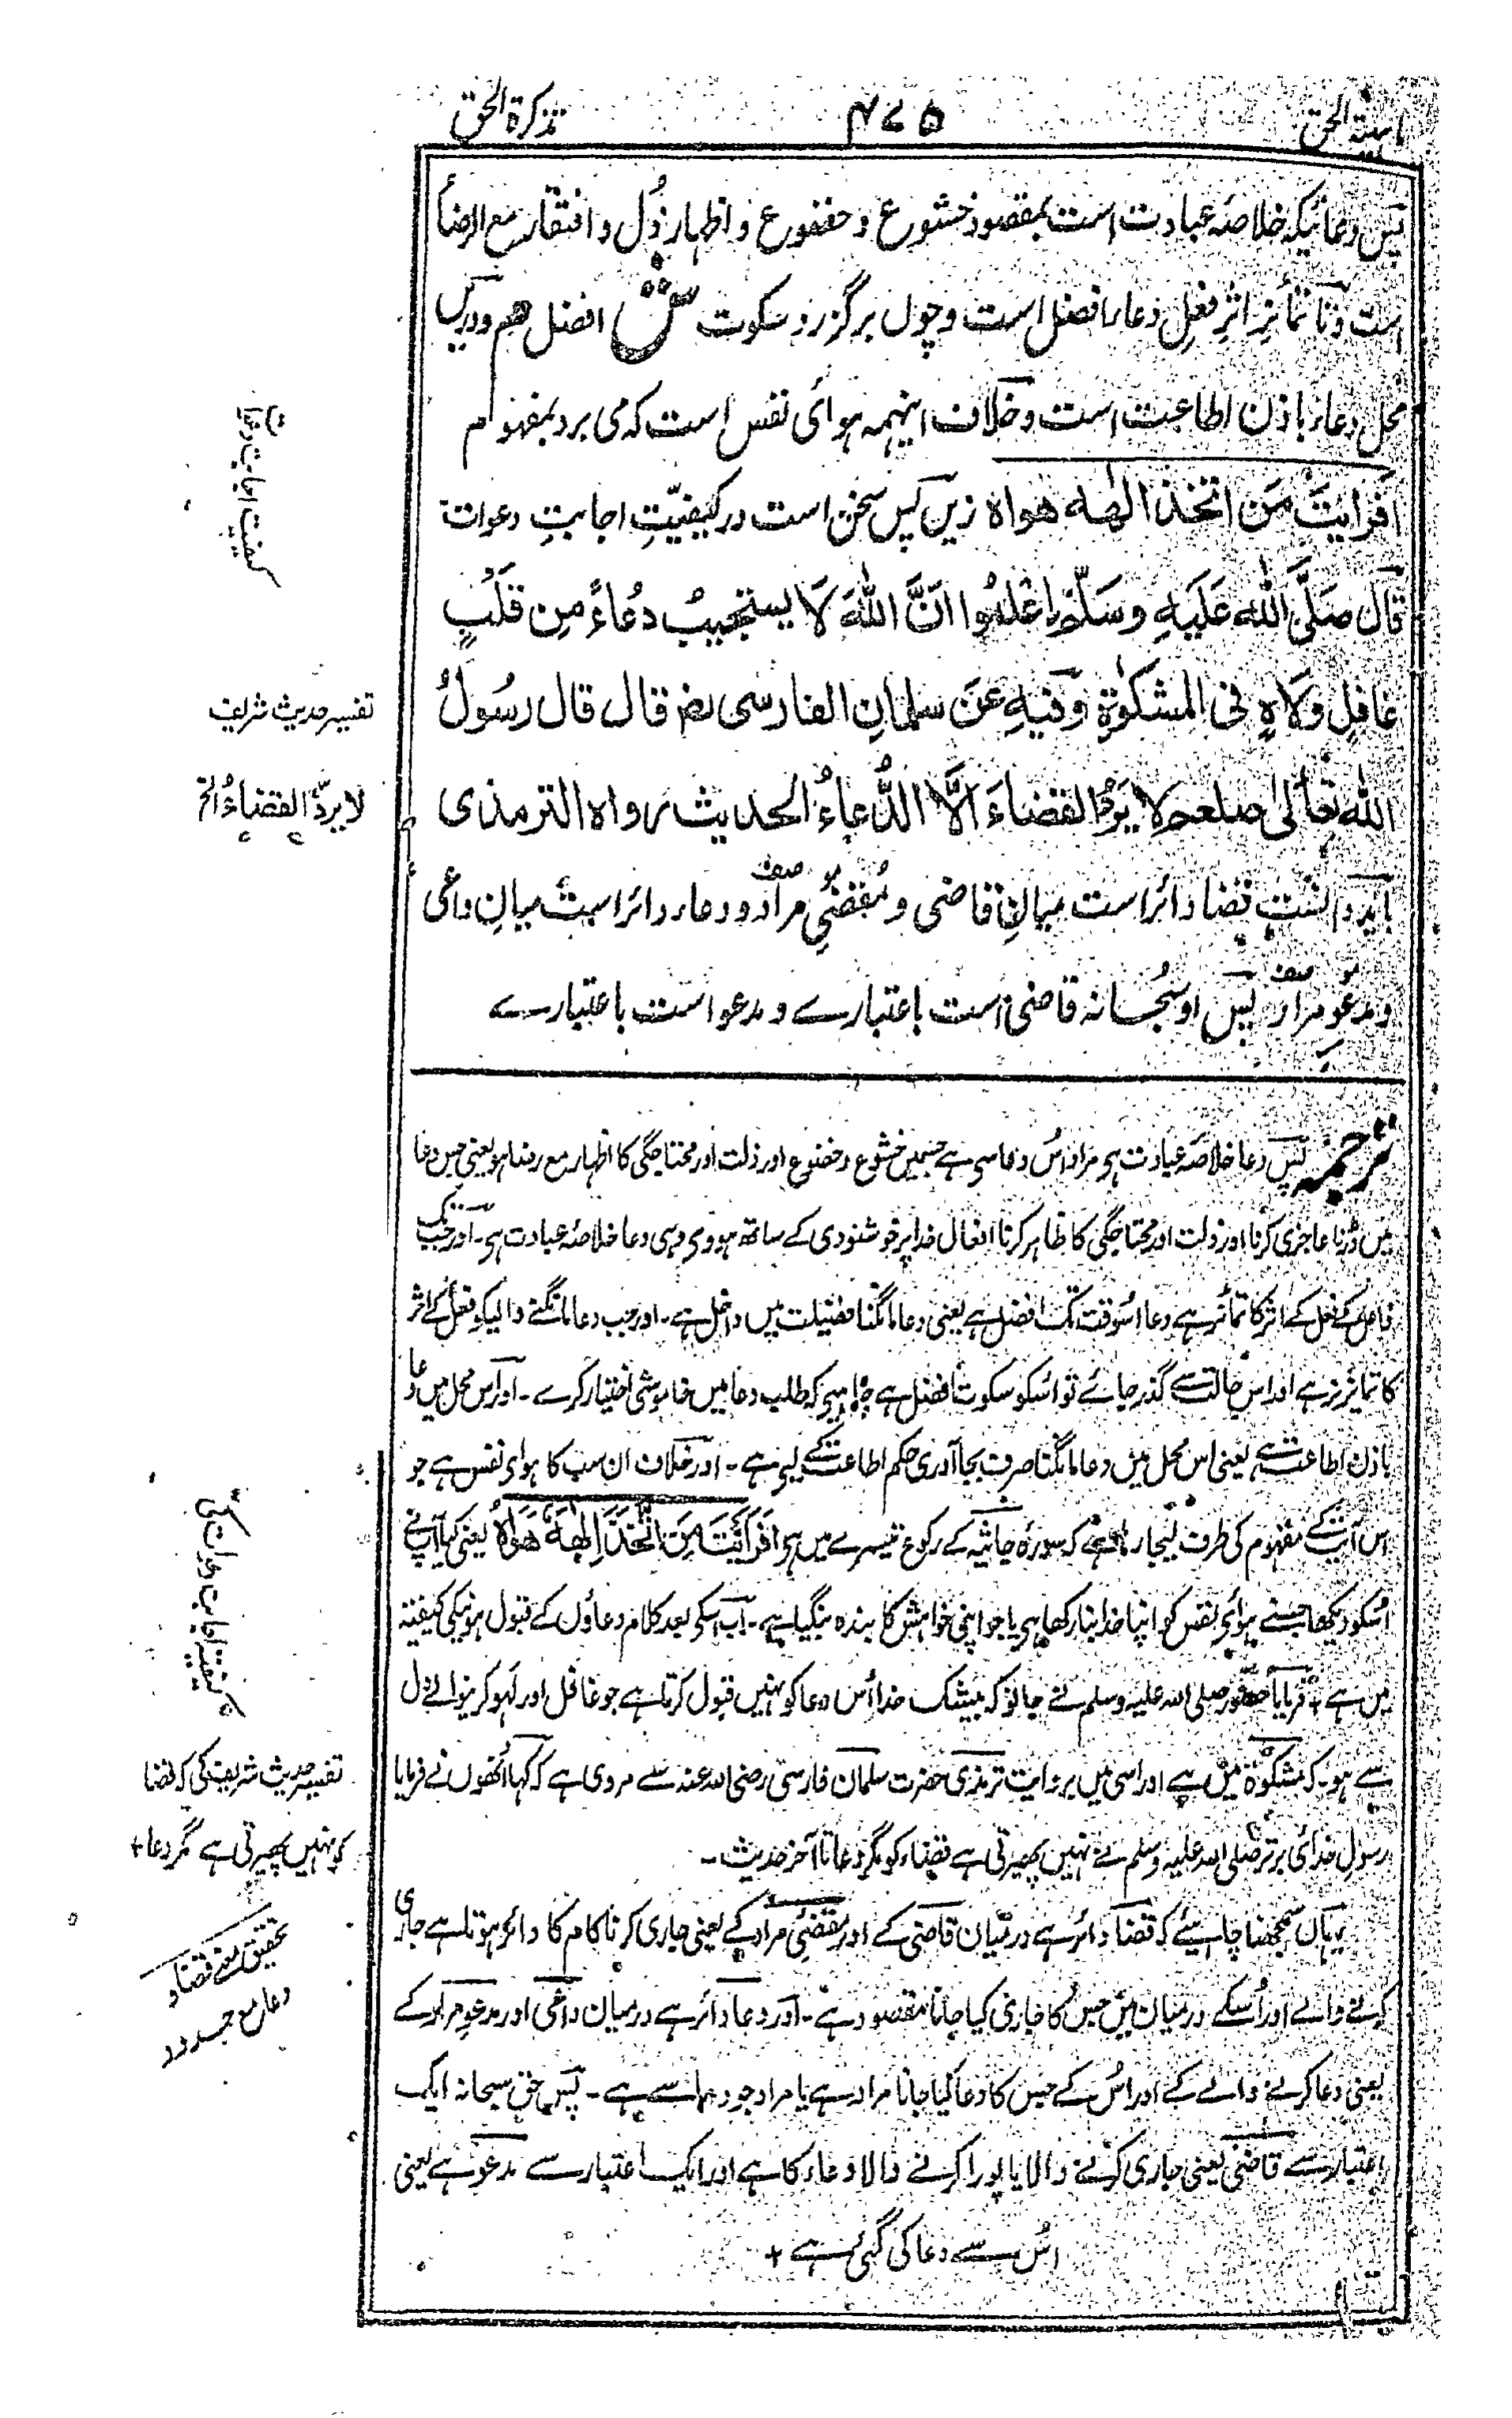 تذکرة الحق
۴۷۵
الحق
پس دعائیکہ خلاصۂ عبادت است بمقصود خشوع و خضوع و اظہار ذُل و افتقار مع الرضا
است و تا تمائز اثرِ فعل دعاء افضل است و چوں برگزرد سکوت افضل ہم و دریں
محل دعاء باذن اطاعت است و خلاف اینہمہ ہوائ نفس است کہ می برد بمفہوم
اَفَرَاَیتَ مَنِ اتَّخَذَ اِلٰهَهٗ هواه زیں پس سخن است در کیفیّتِ اجابتِ دعوات
قال صَلَّی اللهُ عَلَیهِ وسَلَّم اعْلَمُوا انَّ اللهَ لَا یستجیبُ دُعاءً مِن قلْبٍ
غافلٍ ولَاهٍ فی المشکوٰة وفیهِ عَنْ سلمانِ الفارسی رض قال قال رسُولُ
اللهِ تعالٰی صلعم لا یَرُدُّ القضاءَ الَّا الدُّعاءُ الحدیث رواه الترمذی
باید دانست قضا دائر است میانِ قاضی و مُقضیِ مراد و دعاء دائر است میانِ داعی
و مدعُوِ مراد پس او سُبحانہ قاضی است باعتبارے و مدعو است باعتبارے
کیفیت اجابت دعوات
تفسیر حدیث شریف
لا یردُّ القضاءُ الخ
ترجمہ پس دعا خلاصۂ عبادت ہی مراد اُس دعا سی ہے جسمیں خشوع و خضوع اور ذلت اور محتاجگی کا اظہار مع رضا ہو یعنی جس دعا
میں ڈرنا عاجزی کرنا اور ذلت اور محتاجگی کا ظاہر کرنا افعال خدا پر خوشنودی کے ساتھ ہووی وہی دعا خلاصۂ عبادت ہی۔ اور جب تک
فاعل کے فعل کے اثر کا تمائز ہے دعا اسوقت تک افضل ہے یعنی دعا مانگنا فضیلت میں داخل ہے۔ اور جب دعا مانگنے والیکو فعل کے اثر
کا تمائز نرہے اور اس حالت سے گذر جائے تو اسکو سکوت افضل ہے چاہیی کہ طلب دعا میں خاموشی اختیار کرے۔ اور اس محل میں دعا
باذن اطاعت ہے یعنی اس محل میں دعا مانگنا صرف بجا آوری حکم اطاعت کے لیی ہے۔ اور خلاف ان سب کا ہوائ نفس ہے جو
اس آیت کے مفہوم کی طرف لیجا رہا ہے کہ سورۂ جاثیہ کے رکوع تیسرے میں ہی اَفَرَاَیْتَ مَنِ اتَّخَذَ اِلٰهَهٗ هَوَاهُ یعنی کیا آپ نے
اُسکو دیکھا جسنے ہوائ نفس کو اپنا خدا بنا رکھا ہی یا جو اپنی خواہش کا بندہ بنگیا ہے۔ اب اسکی بعد کلام دعاؤں کے قبول ہونیکی کیفیت
میں ہے + فرمایا حضور صلی اللہ علیہ وسلم نے جانو کہ بیشک خدا اُس دعا کو نہیں قبول کرتا ہے جو غافل اور لہو کرنیوالے دل
سے ہو۔ کہ مشکوٰة میں ہے اور اسی میں بروایت ترمذی حضرت سلمان فارسی رضی اللہ عنہ سے مروی ہے کہ کہا اُنھوں نے فرمایا
رسولِ خدائ برتر صلی اللہ علیہ وسلم نے نہیں پھیرتی ہے قضاء کو مگر دعا تا آخر حدیث۔
یہاں سمجھنا چاہیئے کہ قضا دائر ہے درمیان قاضی کے اور مقضیِ مراد کے یعنی جاری کرنا کام کا دائر ہوتا ہے جاری
کرنے والے اور اُسکے درمیان میں جس کا جاری کیا جانا مقصود ہے۔ اور دعا دائر ہے درمیان داعی اور مدعوِ مراد کے
یعنی دعا کرنے والے کے اور اُس کے جس کا دعا کیا جانا مراد ہے یا مراد جو دعا سے ہے۔ پس حق سبحانہ ایک
اعتبار سے قاضی یعنی جاری کرنے والا یا پورا کرنے والا دعاء کا ہے اور ایک اعتبار سے مدعو ہے یعنی
اُس سے دعا کی گئی ہے +
کیفیت اجابت دعوات کی
تفسیر حدیث شریف کی کہ قضا
کو نہیں پھیرتی ہے مگر دعا +
تحقیق معنے قضا و
دعا